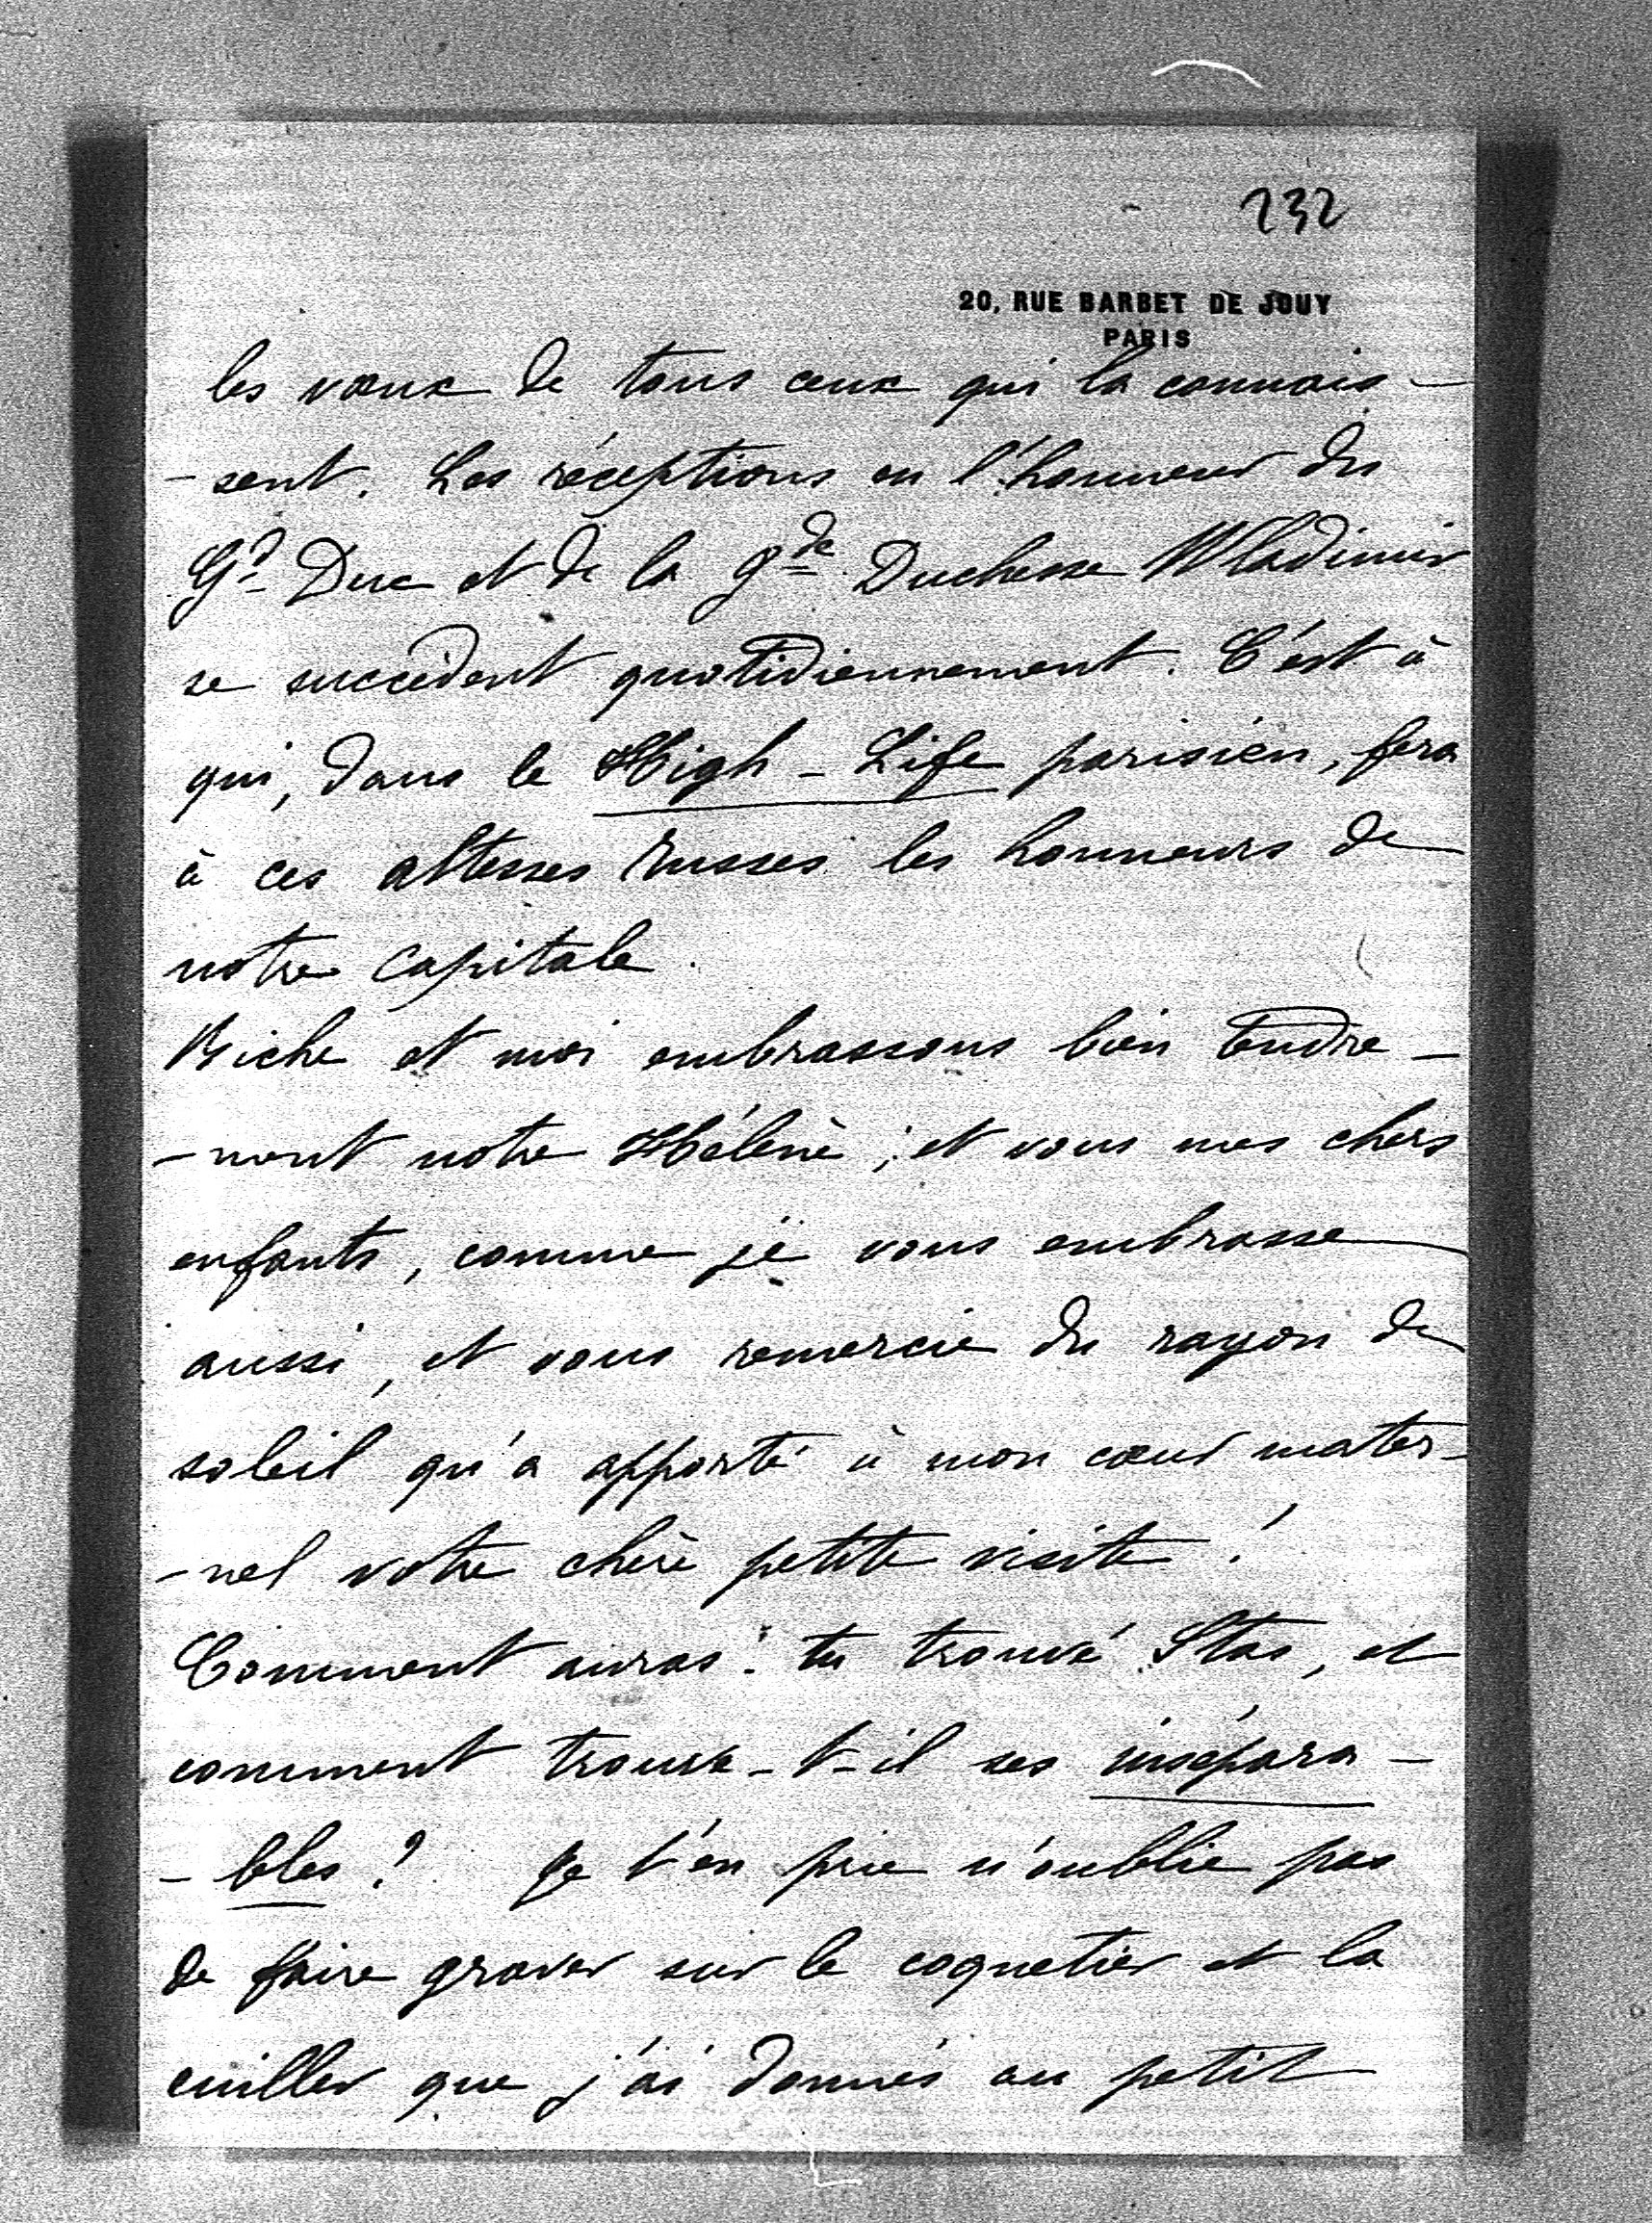 232
20, RUE BARBET DE JOUY
PARIS
les vœux de tous ceux qui la connais-
-sent. Les réceptions en l'honneur du
Gd Duc et de la gde Duchesse Wladimir
se succèdent quotidiennement. C'est à
qui, dans le High-Life parisien, fera
à ces altesses russes les honneurs de
notre capitale.
Biche et moi embrassons bien tendre-
-ment notre Hélène ; et vous mes chers
enfants, comme je vous embrasse
aussi, et vous remercie du rayon de
soleil qu'a apporté à mon cœur mater-
-nel votre chère petite visite !
Comment auras-tu trouvé Stas, et
comment trouve-t-il ses insépara-
-bles ? Je t'en prie n'oublie pas
de faire graver sur le coquetier et la
cuiller que j'ai donnés au petit